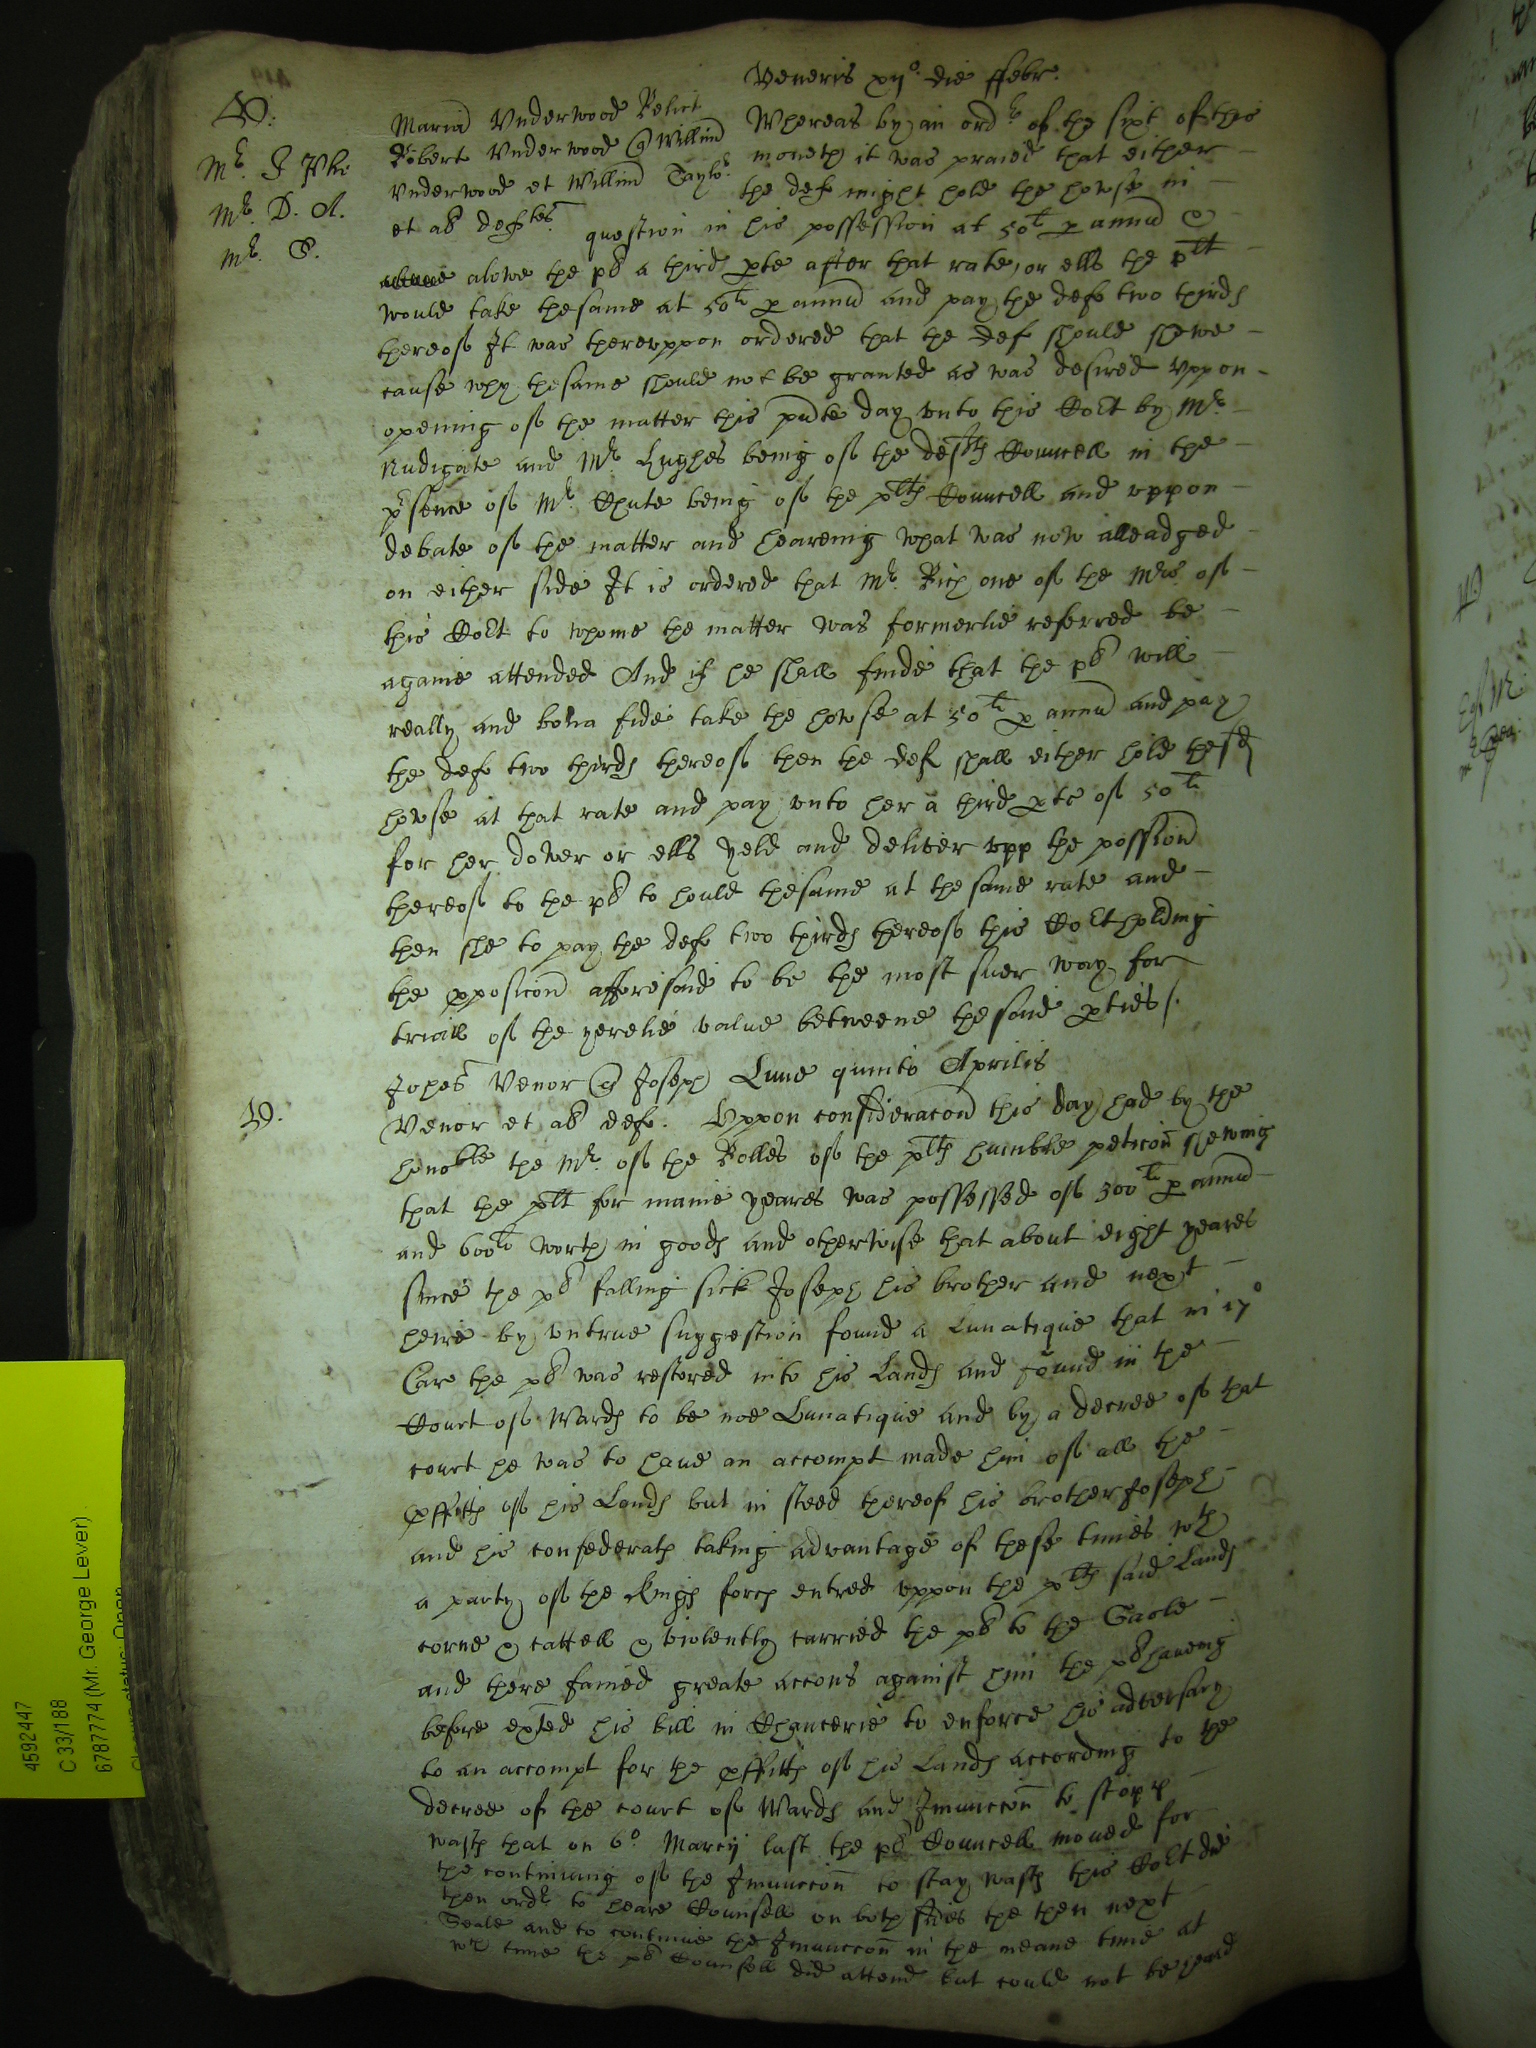 Veneris xijo die ffebr.
Maria Vnderwood Relict
Robert Vnderwood q Willim
Vnderwood et Willim Taylor
et al deftes
Whereas by an ordr of the sixt of this
moneth it was praied that either
the def might hold the howse in
question in his possession at 50li p annu &
alowe the pl a third pte after that rate, or ells the plt
would take thesame at 50li p annu and pay the def two thirds
thereof It was therevppon ordered that the def should shewe
cause why thesame should not be granted as was desired Vppon
opening of the matter this pnte day vnto this Cort by Mr
Nudigate and Mr Hughes being of the defts Councell in the
psence of Mr Chute being of the plts Councell and vppon
debate of the matter and heareing what was now alleadged
on either side It is ordered that Mr Rich one of the Mrs of
this Cort to whome the matter was formerlie referred be
againe attended And if he shall finde that the pl will
really and bona fide take the howse at 50li p annu and pay
the def two thirds thereof then the def shall either hold the sd
howse at that rate and pay vnto her a third pte of 50li
for her dower or ells yeld and deliver vpp the possion
thereof to the pl to hould thesame at the same rate and
then she to pay the def two thirds thereof this Cort holding
the pposicon afforesaid to be the most suer way for
triall of the yerelie value betweene thesaid pties /.
Johes Venor q Joseph
Venor et al def.
Lune quinto Aprilis
Vppon consideracon this day had by the
honoble the Mr of the Rolles of the plts humble peticon shewing
that the plt for manie yeares was possessed of 500li p annu
and 600li worth in goods and otherwise that about eight yeares
since the pl falling sick Joseph his brother and next
heire by vntrue suggestion found a Lunatique that in 17o
Car the pl was restored into his Lands and found in the
Court of Wards to be noe Lunatique and by a decree of that
court he was to haue an accompt made him of all the
pffitts of his Lands but in steed thereof his brother Joseph
and his confederats taking advantage of these times wth
a party of the Kings forces entred vppon the plts said Lands
corne & cattell & violently carried the pl to the Gaole
and there famed greate accons against him the pl haueing
before exhted his bill in Chancerie to enforce his adversary
to an accompt for the pffitts of his Lands according to the
decree of the court of Wards and Iniunccon to stopp
wasts that on 6o Marcij last the pls Councell moued for
the continuing of the Iniunccon to stay wasts this Cort did
then ordr to heare Counsell on both sides the then next
Seale and to continue the Iniunccon in the meane time at
wch time the pls Counsell did attend but could not be heard
Mr D. A.
4592447
C 33/188
6787774 (Mr. George Lever)